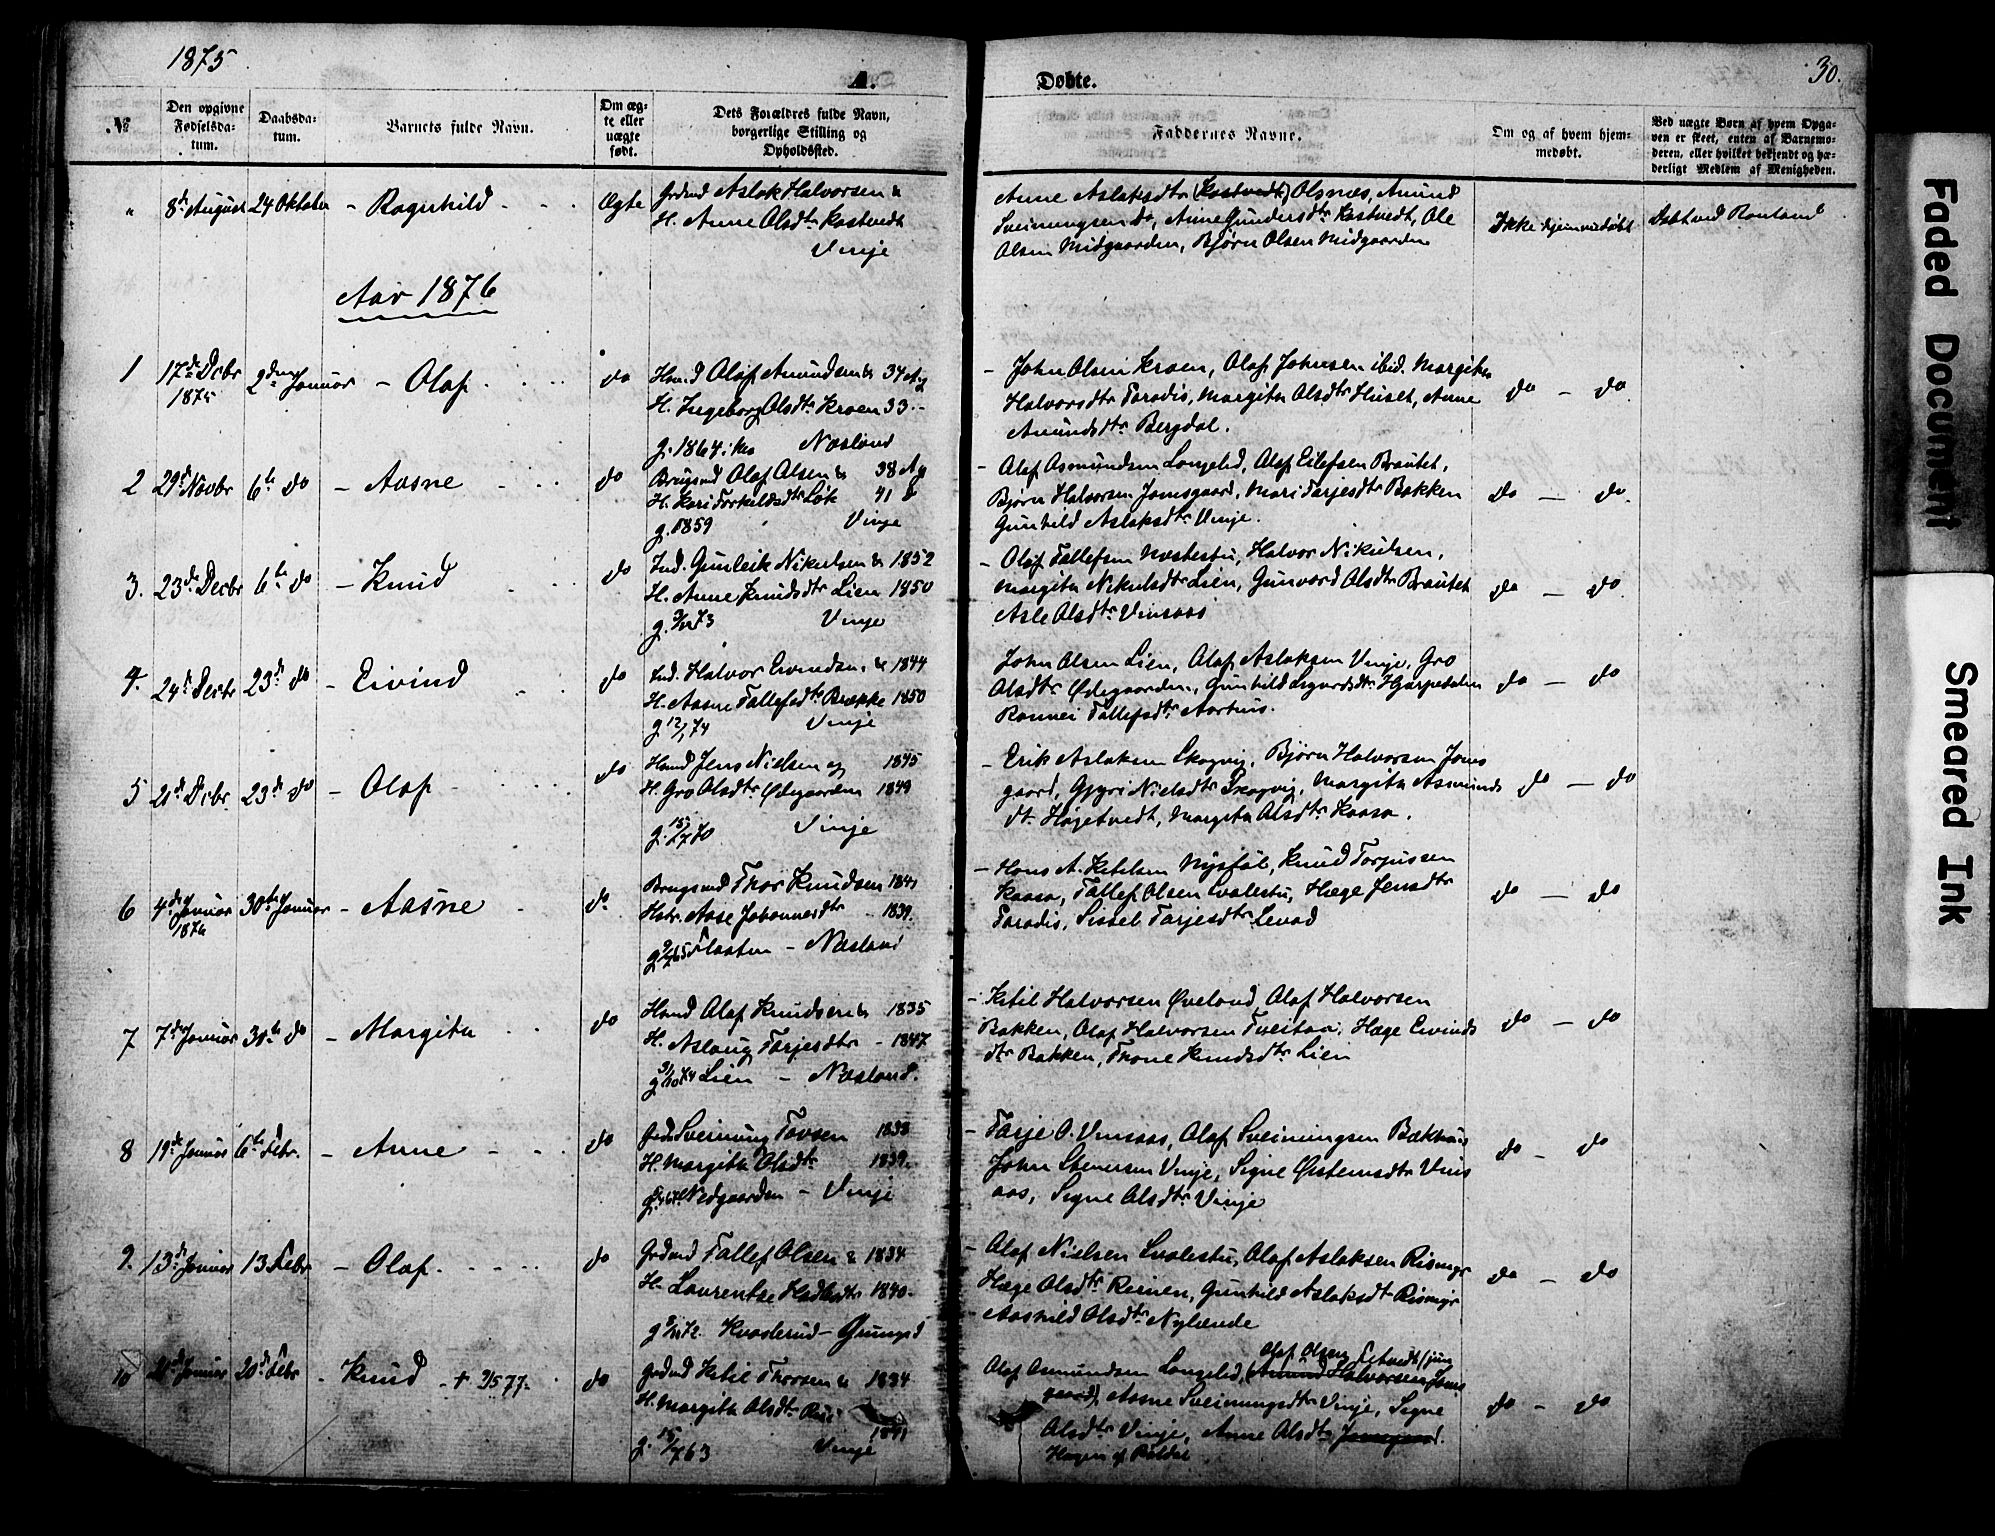 1875
A.
Døbte.
30.
№
Den opgivne Fødselsda-tum.
Daabsda-tum.
Barnets fulde Navn.
Om æg-te eller uægte født.
Dets Forældres fulde Navn, borgerlige Stilling og Opholdssted.
Faddernes Navne.
Om og af hvem hjem-medøbt.
Ved uægte Børn af hvem Opga-ven er skeet, enten af Barnemo-deren, eller hvilket bekjendt og hæ-derligt Medlem af Menigheden.
" 8de August 24 Oktober - Ragnhild - Ægte
Grdmd Aslak Halvorsen &
H. Anne Olsdtr Kostvedt
Vinje
Anne Aslaksdtr (Kostvedt) Olsnes, Amund
Sveinungsen do, Anne Gundersdtr Kostvedt, Ole
Olsen Midgaarden, Bjørn Olsen Midgaarden
Ikke hjemmedøbt
Døbt ved Rauland
Aar 1876
1 17de Decbr 1875 2den Januar - Olaf - do
Hmd Olaf Amundsen & 34 Aar
H. Ingeborg Olsdtr Kroen 33 -
g. 1864 Næsland
- John Olsen Kroen, Olaf Johnsen ibid. Margitha
Halvorsdtr Paradis, Margitha Olsdtr Huset, Anne
Amundsdtr Bergdal.
do - do
2 29de Novbr 6te do - Aasne - do
Brugsmd Olaf Olsen & 38 Aar
H. Kari Torkildsdtr Løk 41
g. 1859 Vinje
- Olaf Asmundsen Longelid, Olaf Eilefsen Brautet,
Bjørn Halvorsen Jamsgaard, Mari Tarjesdtr Bakken
Gunhild Aslaksdtr Vinje.
do - do
3. 23de Decbr 6te do - Knud do
Ind. Gunleik Nikulsen & 1852
H. Anne Knudsdtr Lien 1850
Vinje
- Olaf Tallefsen Nostestu, Halvor Nikulsen,
Margitha Nikulsdtr Lien, Gunvord Olsdtr Brautet
Asle Olsdtr Vinsaas
do - do
4. 24de Decbr 23de do - Eivind do
Ind. Halvor Eivindsen & 1844
H. Aasne Tallefsdtr Brække 1850
g 12/1 74 Vinje
John Olsen Lien, Olaf Aslaksen Vinje, Gro
Olsdtr Ødegaarden, Gunhild Sigurdsdtr Hjærpedalen
Ronnei Tallefsdtr Aarhus.
do - do
5 21de Dcbr 23de do - Olaf do
Hmd Jens Nielsen og 1845
H. Gro Olsdtr Ødegaarden 1849
Vinje
- Erik Aslaksen Skogvig, Bjørn Halvorsen Jams
gaard, Gjyri Nielsdtr Skogvig, Margitha Asmunds
dtr Hagetvedt, Margitha Olsdtr Kaasa.
do - do
6 4de Januar 1876 30te Januar - Aasne do.
Brugsmd Thor Knudsen 1841
Hstr. Aase Johannesdtr - 1839.
Flaaten - Næsland
- Hans A. Ketilsen Nysføl, Knud Torjussen
Kaasa, Tallef Olsen Svalestu, Hæge Jensdtr
Paradis, Sissel Tarjesdtr Levad
do - do
7 7de Januar 30te do - Margitha do
Hmd Olaf Knudsen & 1835
H. Aslaug Tarjesdtr - 1847
Lien - Næsland.
- Ketil Halvorsen Øveland, Olaf Halvorsen
Bakken, Olaf Halvorsen Tveitaa, Hæge Eivinds
dtr Bakken, Thone Knudsdtr Lien
do - do
8 19de Januar 6te Febr. - Anne - do
Grdmd Sveinung Tovsen 1838
H. Margitha Olsdtr 1839.
Nedgaarden - Vinje
- Tarje O. Vinsaas, Olaf Sveinungsen Bækhus
John Stenersen Vinje, Signe Østensdtr Vins
aas, Signe Olsdtr Vinje
do - do
9. 13de Januar 13 Febr - Olaf. do
Grdmd Tallef Olsen & 1834
H. Laurentze Hadledtr 1840.
Kvaslerud - Grungd
- Olaf Nielsen Svalestu, Olaf Aslaksen Rismyr
Hæge Olsdtr Reinen, Gunhild Aslaksdtr Rismyr
Aashild Olsdtr Nylænde
do - do
10 Januar 20de Febr - Knud - † 3/5 77. do
Grdmd Ketil Thorsen & 1834
H. Margitha Olsdtr 1841
g. 15/7 63 Vinje
Olaf Asmundsen Longelid, (Amund Halvorsen Jams
gaard), Aasne Sveinungsdtr Vinje, Signe
Olsdtr Vinje, Anne Olsdtr Jamsgaard.
do - do
Faded Document
Smeared Ink